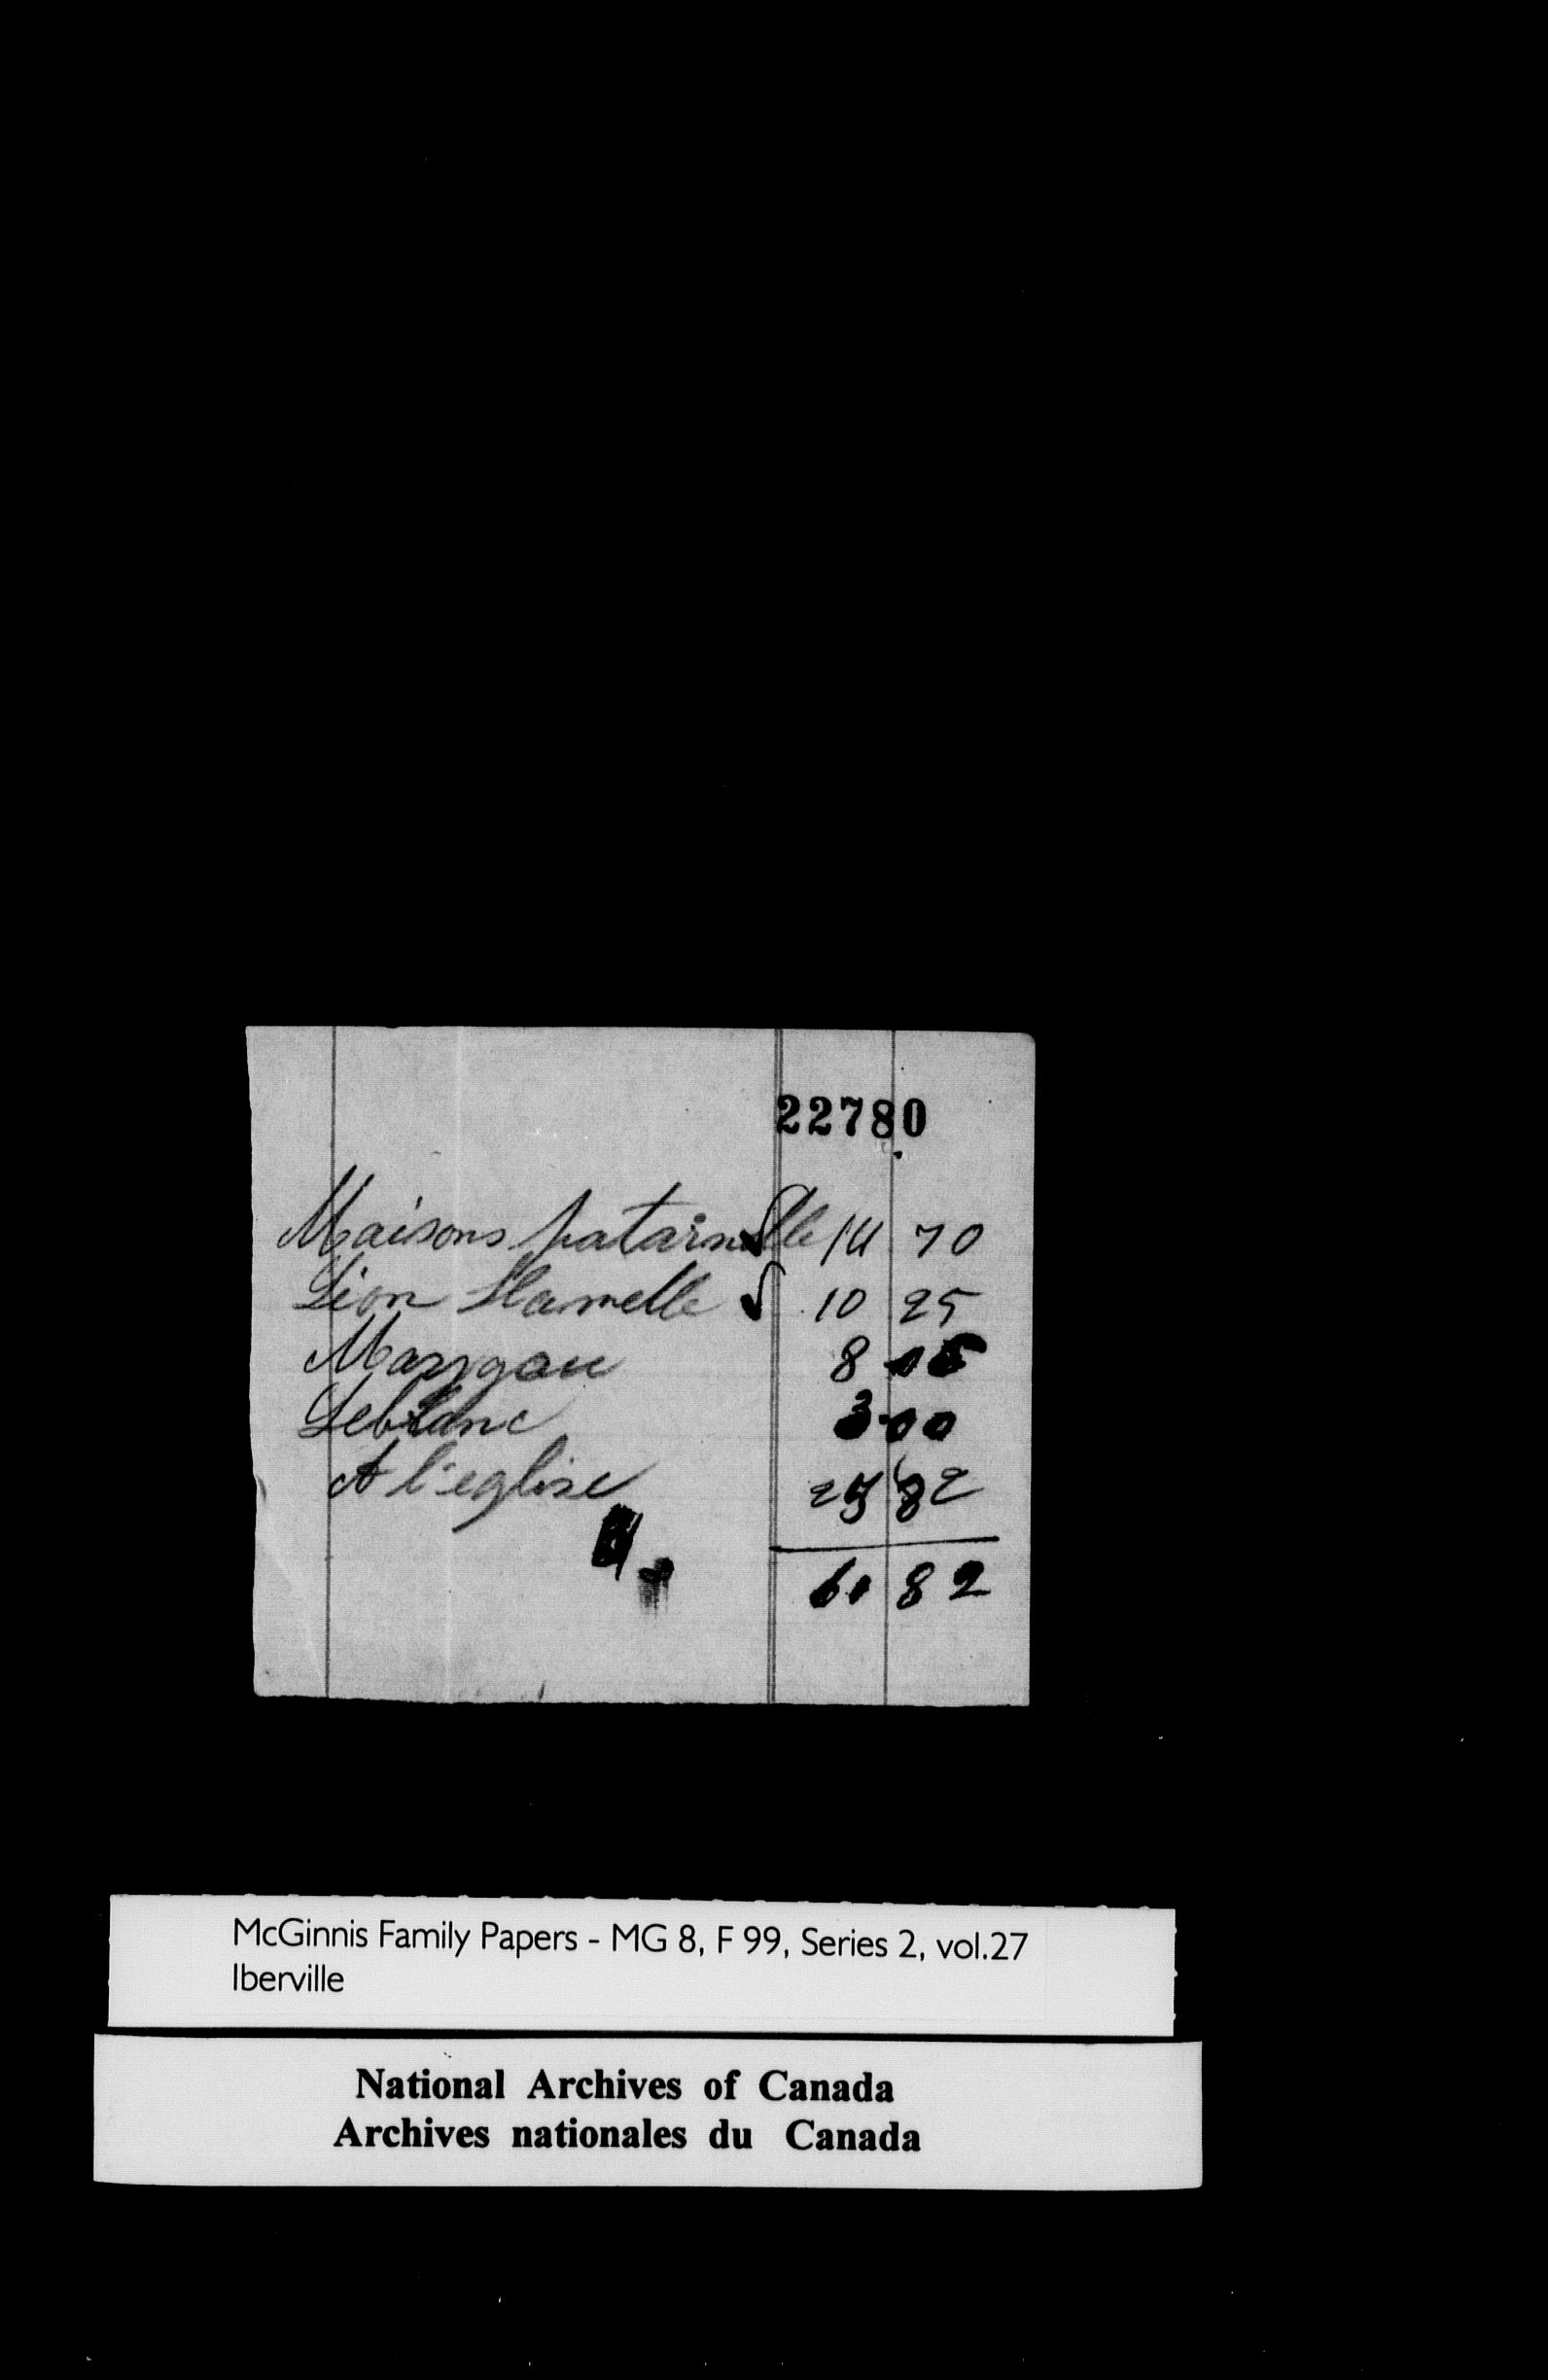 22780
Maisons patarnelle 14 70
Lion Hamelle 10 25
8 05
Leblanc 3.00
A l'eglise 82
61 82
McGinnis Family Papers - MG 8, F 99, Series 2, vol.27
Iberville
National Archives of Canada
Archives nationales du Canada